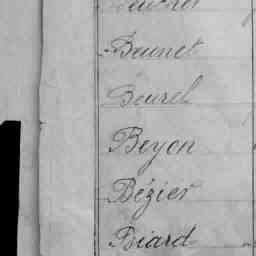 Beunet
Beurel
Beyon
Bézier
Biard